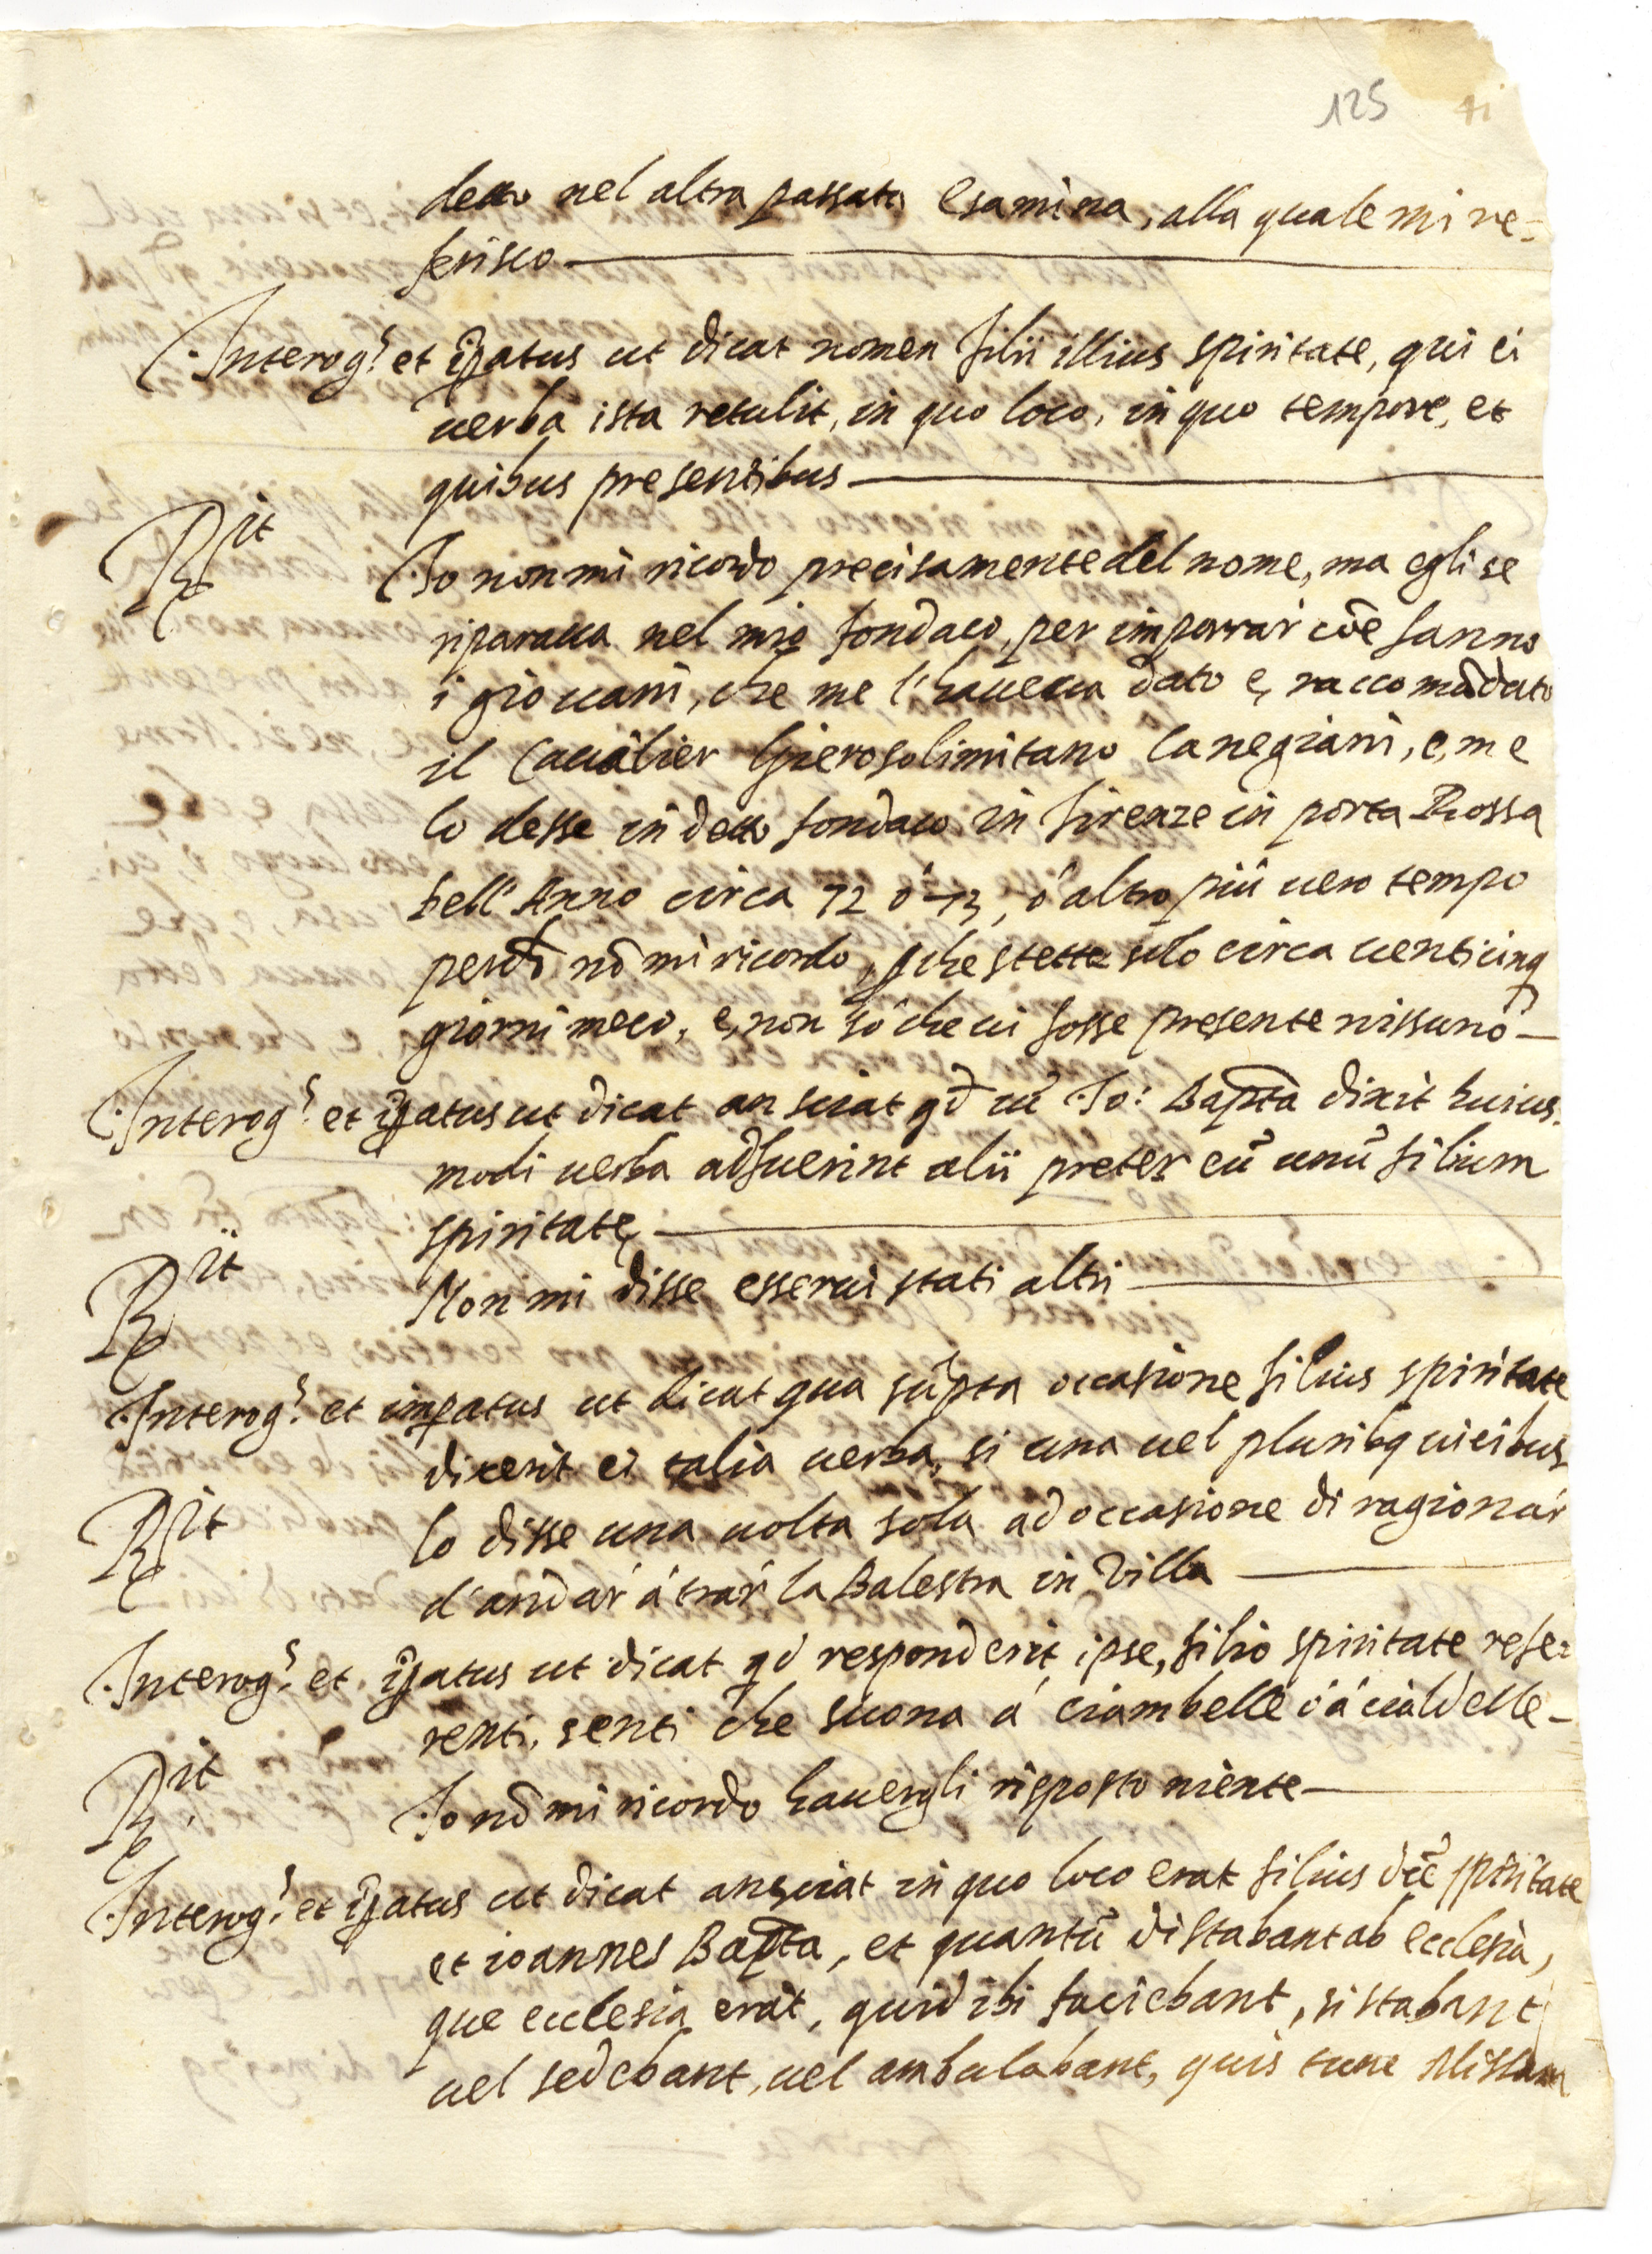 125 41
detto nel altra passata esamina, alla quale mi re-
ferisco
Interog.s et īpatus ut dicat nomen filii illius spiritate, qui ei
uerba ista retulit, in quo loco, in quo tempore, et
quibus presentibus
Rit Io non mi ricordo precisamente del nome, ma egli se
riparaua nel mio fondaco, per imparar cōe fanno
i giouani, che me l'haueua dato e, raccomādato
il Caualier Gierosolimitano Canegiani, e, me
lo desse in detto fondaco in firenze in porta Rossa
dell'Anno circa 72 ó 73, ó altro piú uero tempo
perche nō mi ricordo, che stette solo circa uenticinq
giorni meco, e, non só che ui fosse presente nissuno
Interog.s et īpatus ut dicat an sciat qđ cū Io: Bapta dixit huius-
modi uerba adfuerint alii preter eū unū filium
spiritate
Rit Non mi disse esserui stati altri
Interog.s et impatus ut dicat qua sūpta occasione filius spiritate
dixerit ei talia uerba, si una uel pluribq uicibus
Rit lo disse una uolta sola ad occasione di ragionar
d'andar á trar la Balestra in Villa
Interog.s et īpatus ut dicat qd responderit ipse, filio spiritate refe-
renti, senti che suona á ciambelle ó á cialdelle
Rit Io nō mi ricordo hauergli risposto niente
Interog.s et īpatus ut dicat an sciat in quo loco erat filius dcē spiritate
et ioannes Bapta, et quantū distabant ab ecclesia,
que ecclesia erat, quid ibi faciebant, si stabant
uel sedebant, uel ambulabant, quis tunc Missam